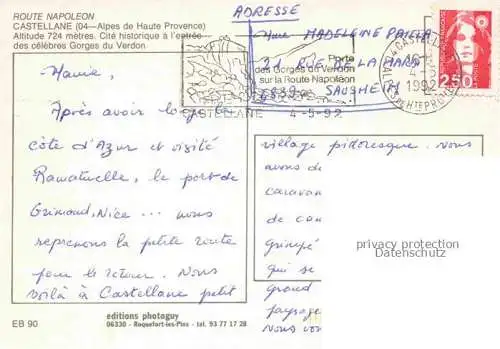 ROUTE NAPOLEON
CASTELLANE (04—Alpes de Haute Provence)
Altitude 724 mètres. Cité historique à l'entrée
des célèbres Gorges du Verdon
ADRESSE
Mme MADELEINE
21 RUE DE LA HARD
68390 SAUSHEIM
Porte
des Gorges du Verdon
sur la Route Napoléon
CASTELLANE 4-5-92
04 CASTELLANE
4-5
1992
ALPES DE HTE PROV
2,50
Mamie,
Après avoir longé la
côte d'Azur et visité
Ramatuelle, le port de
Grimaud, Nice ... nous
reprenons la petite route
pour le retour. Nous
voilà à Castellane petit
village pittoresque. Nous
avons
caravan
de cam
grimpé
qui se
grand
paysage
Nous vo
privacy protection
Datenschutz
EB 90
editions photoguy
06330 - Roquefort-les-Pins - tél. 93 77 17 28